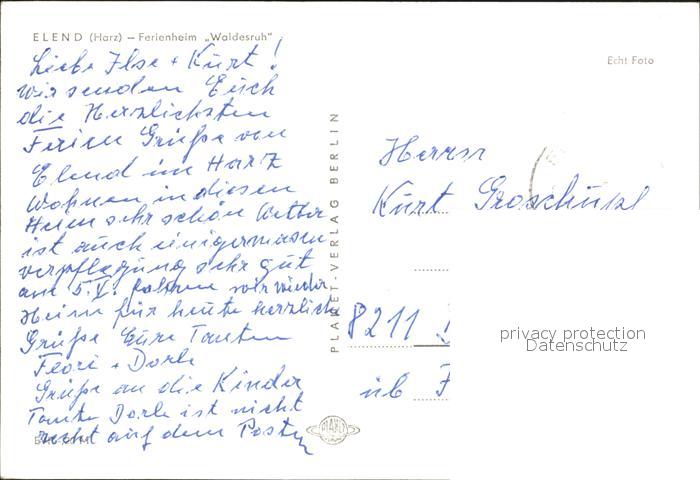 ELEND (Harz) — Ferienheim „Waldesruh"
Echt Foto
Liebe Ilse + Kurt!
wir senden Euch
die Herzlichsten
Ferien Grüße von
Elend im Harz
Wohnen in diesen
Heim sehr schön Wetter
ist auch einigermasen
verpflegung sehr gut
am 5.V. fahren wir wieder
Heim für heute herzlich
Grüße Eure Tanten
+ Dorle
Grüße an die Kinder
Tante Dorle ist nicht
recht auf dem Posten
PLANET-VERLAG BERLIN
PLANET
Herrn
Kurt
8211
üb
privacy protection
Datenschutz